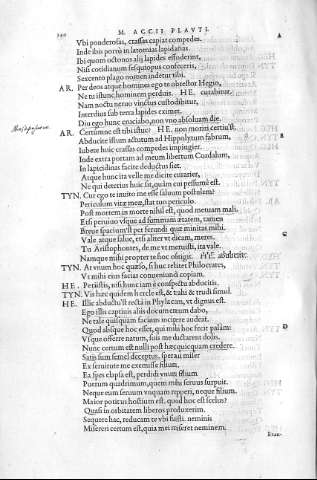 240 M. ACCII PLAVTI
A
Vbi ponderosas, crassas capiat compedes.
Inde ibis porrò in latomias lapidarias.
Ibi quom octonos alij lapides effodiunt,
Nisi cotidianum sesquiopus confeceris,
Sexcento plago nomen indetur tibi.
AR. Per deos atque homines ego te obtestor Hegio,
Ne tu istunc hominem perduis. HE. curabitur.
Nam noctu neruo vinctus custodibitur,
Interdius sub terra lapides eximet.
Diu ego hunc cruciabo, non vno absoluam die.
AR. Certumne est tibi istuc? HE. non moriri certius'st.
B
Abducite istum actutum ad Hippolytum fabrum,
Iubete huic crassas compedes impingier.
Inde extra portam ad meum libertum Cordalum,
In lapicidinas facite deductus siet.
Atque hunc ita velle me dicite curarier,
Ne qui deterius huic sit, quàm cui pessumè est.
TYN. Cur ego te inuito me esse saluum postulem?
Periculum vitæ meæ, stat tuo periculo.
Post mortem in morte nihil est, quod metuam mali.
Etsi peruiuo vsque ad summam ætatem, tamen
Breue spacium'st perferundi quæ minitas mihi.
C
Vale atque salue, etsi aliter vt dicam, meres.
Tu Aristophontes, de me vt meruisti, ita vale.
Namque mihi propter te hoc obtigit. HE. abducite.
TYN. At vnum hoc quæso, si huc rebitet Philocrates,
Vt mihi eius facias conueniundi copiam.
HE. Periistis, nisi hunc iam è conspectu abducitis.
TYN. Vis hæc quidem hercle est, & trahi & trudi simul.
HE. Illic abductu'st rectà in Phylacam, vt dignus est.
Ego illis captiuis aliis documentum dabo,
Ne tale quisquam facinus incipere audeat.
D
Quod absque hoc esset, qui mihi hoc fecit palàm:
Vsque offerre natum, suis me ductarent dolis.
Nunc certum est nulli post hæc quicquam credere.
Satis sum semel deceptus. speraui miser
Ex seruitute me exemisse filium,
Ea spes elapsa est, perdidi vnum filium
Puerum quadrimum, quem mihi seruus surpuit.
Neque eum seruum vnquam repperi, neque filium.
Maior potitus hostium est. quod hoc est scelus?
Quasi in orbitatem liberos produxerim.
Sequere hac, reducam te vbi fuisti. neminis
Misereri certum est, quia mei miseret neminem.